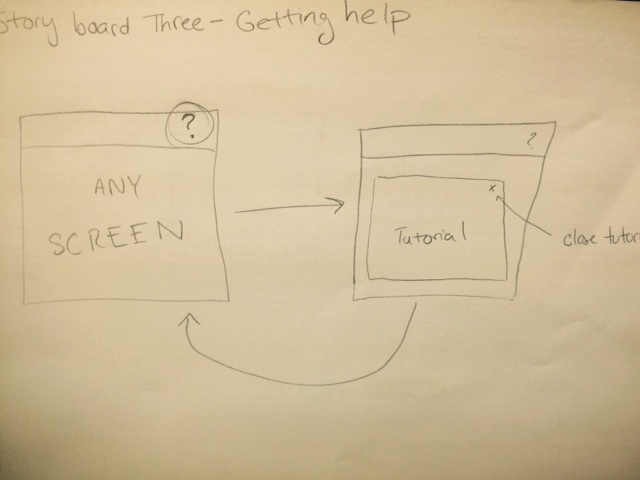 Story board Three - Getting help
?
ANY
SCREEN
?
x
Tutorial
close tutor